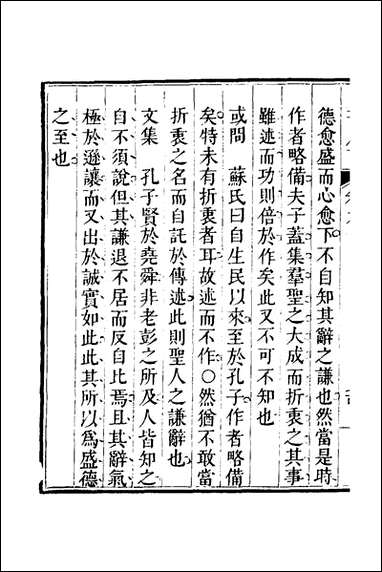 德愈盛而心愈下不自知其辭之謙也然當是時
作者略備夫子蓋集羣聖之大成而折衷之其事
雖述而功則倍於作矣此又不可不知也
或問　蘇氏曰自生民以來至於孔子作者略備
矣特未有折衷者耳故述而不作○然猶不敢當
折衷之名而自託於傳述此則聖人之謙辭也
文集　孔子賢於堯舜非老彭之所及人皆知之
自不須說但其謙退不居而反自比焉且其辭氣
極於遜讓而又出於誠實如此此其所以爲盛德
之至也